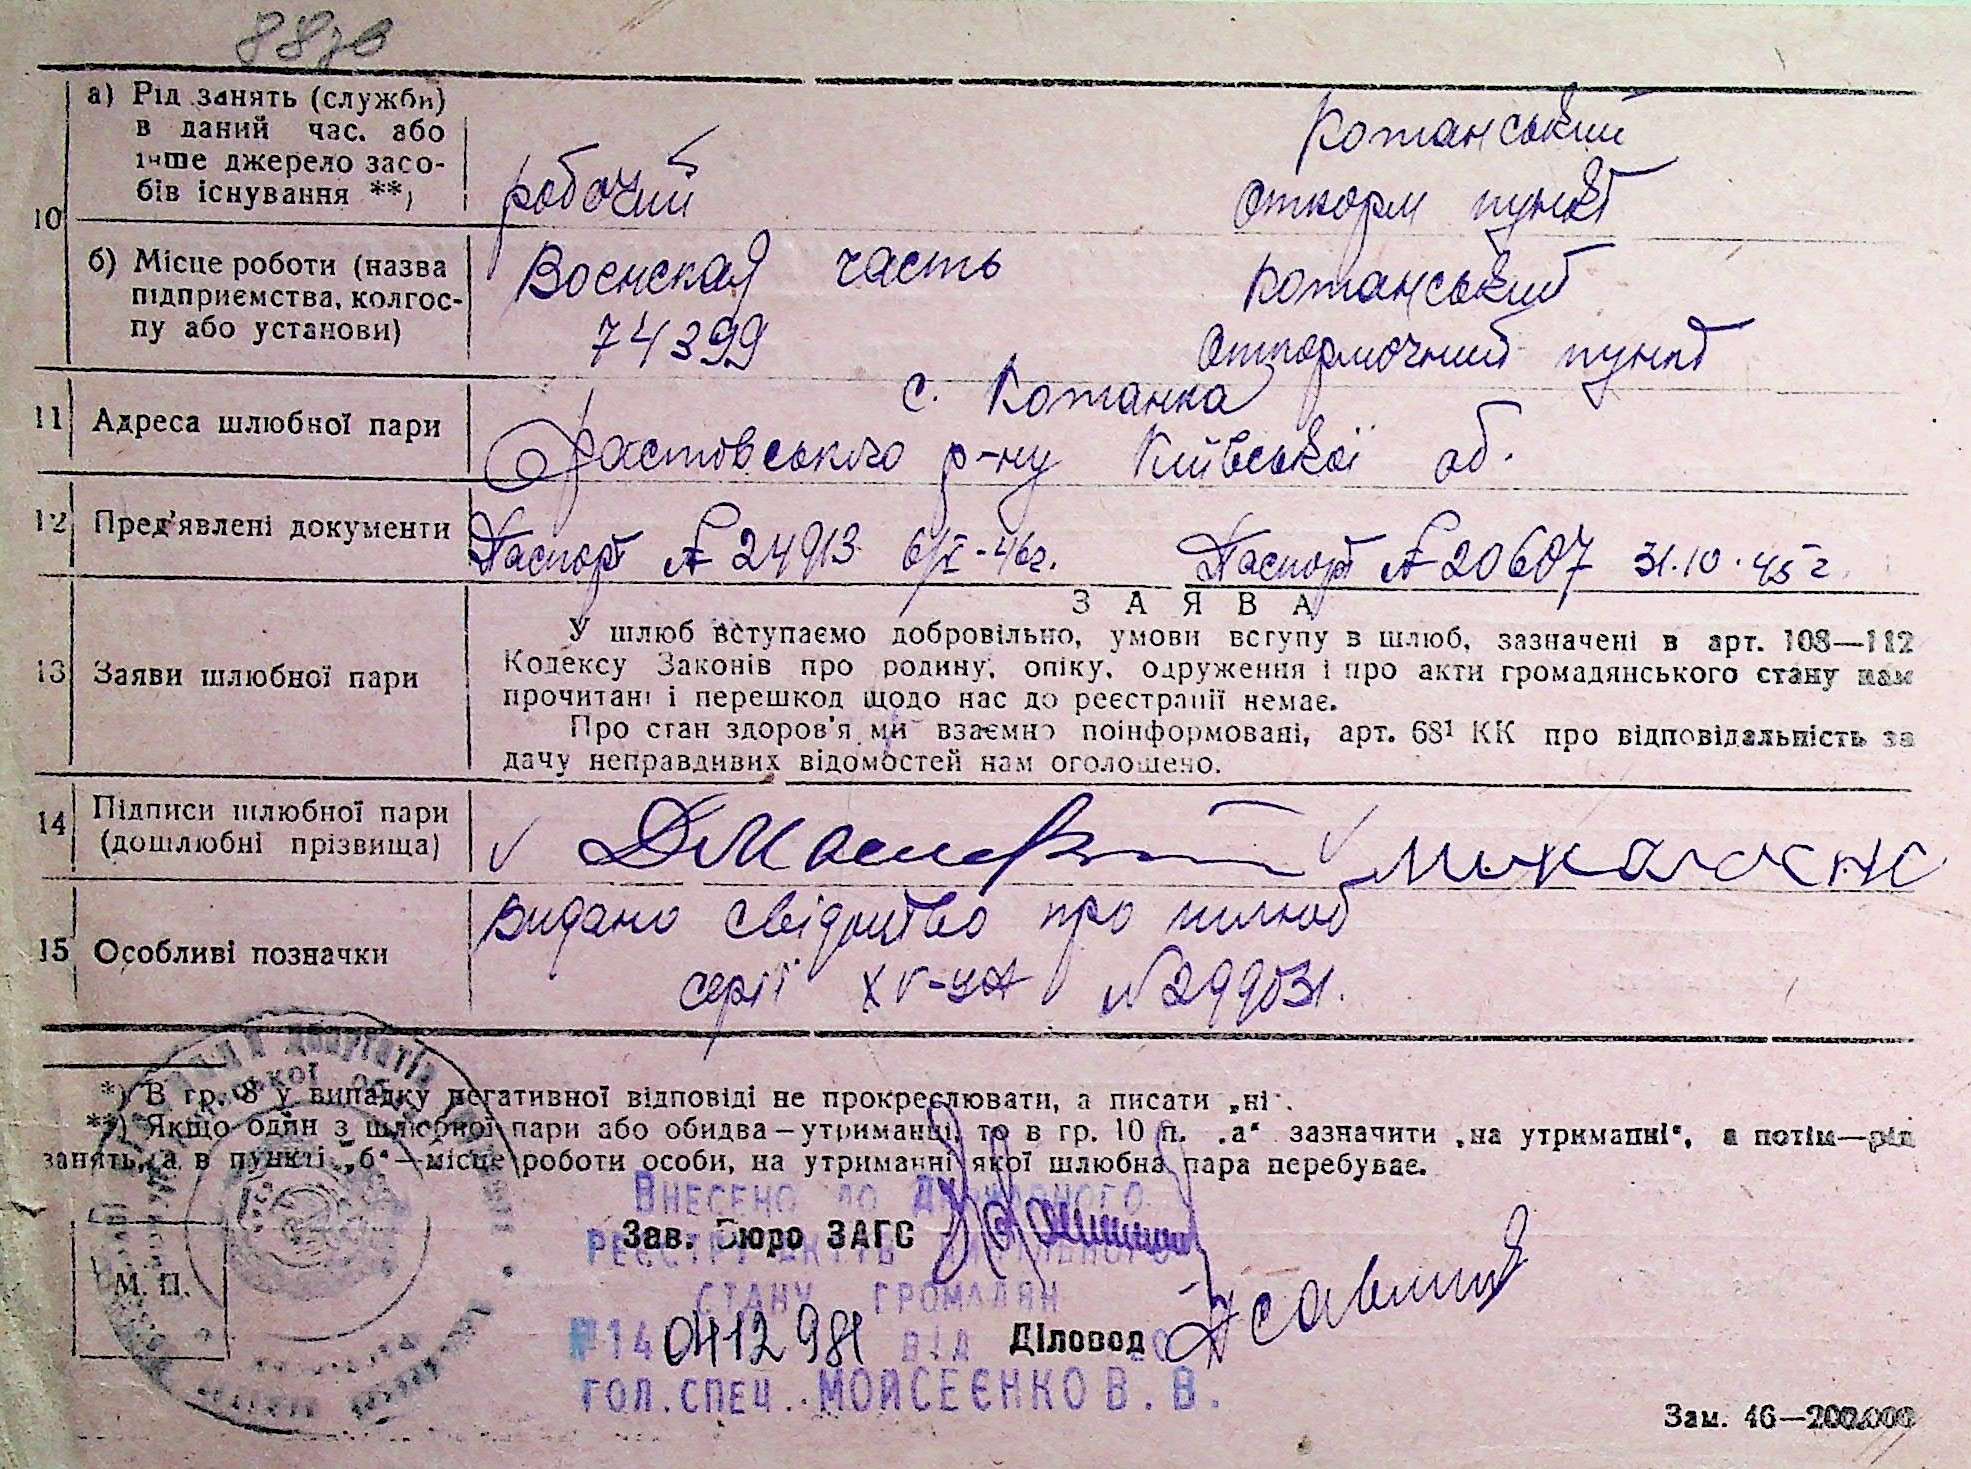 88зв
а) Рід занять (служби) в даний час. або інше джерело засобів існування **)
робочий
Котанський
откорм пункт
10
б) Місце роботи (назва підприємства, колгоспу або установи)
Воєнская часть
74399
Котанський
откормочний пункт
11 Адреса шлюбної пари
с. Кожанка
Фастовського р-ну Київської об.
12 Пред'явлені документи
Паспорт № 24913 6/X-46г. Паспорт № 20607 31.10.45 г.
З А Я В А
13 Заяви шлюбної пари
У шлюб вступаємо добровільно, умови вступу в шлюб, зазначені в арт. 108—112
Кодексу Законів про родину, опіку, одруження і про акти громадянського стану нам
прочитані і перешкод щодо нас до реєстрації немає.
Про стан здоров'я ми взаємно поінформовані, арт. 68¹ КК про відповідальність за
дачу неправдивих відомостей нам оголошено.
14 Підписи шлюбної пари
(дошлюбні прізвища)
15 Особливі позначки
Видано свідотство про шлюб
серії XV-УА №299031.
*) В гр. 8 у випадку негативної відповіді не прокреслювати, а писати „ні".
**) Якщо один з шлюбної пари або обидва—утриманці, то в гр. 10 п. „а" зазначити „на утриманні", а потім—рід
занять, а в пункті „б"—місце роботи особи, на утриманні якої шлюбна пара перебуває.
Внесено до Державного
Зав. Бюро ЗАГС
реєстру актів цивільного
стану громадян
М. П.
№14 0412981 від
Діловод
гол. спец. Мойсеєнко В. В.
Зам. 46—200.000